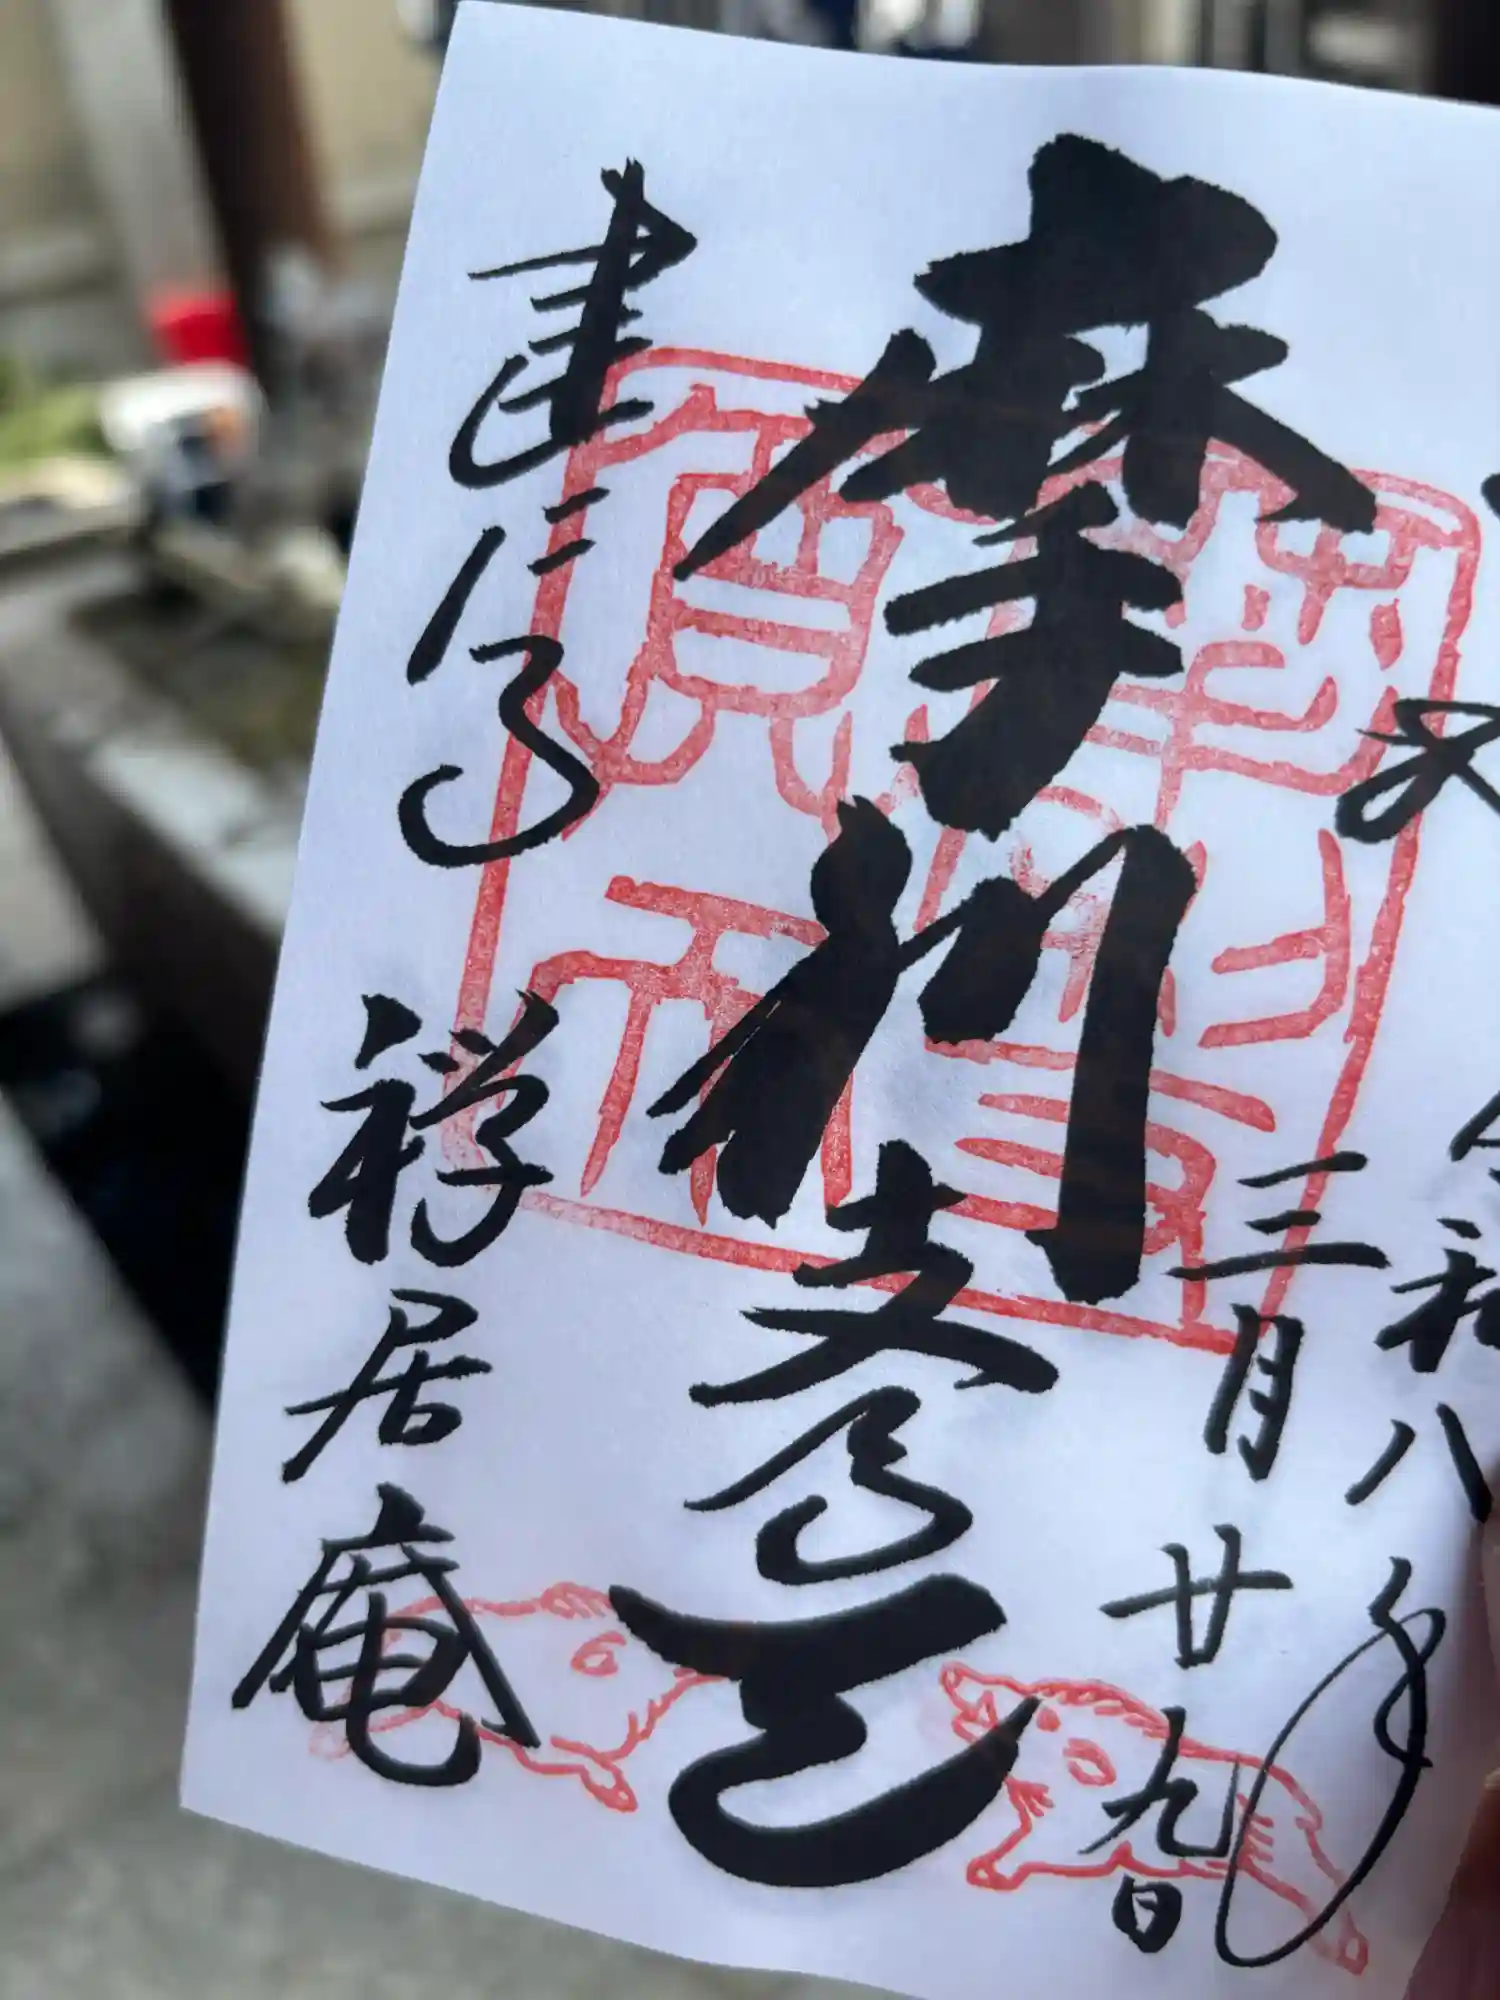 令和八年
三月廿九日
摩利支尊天
建仁寺
禅居庵